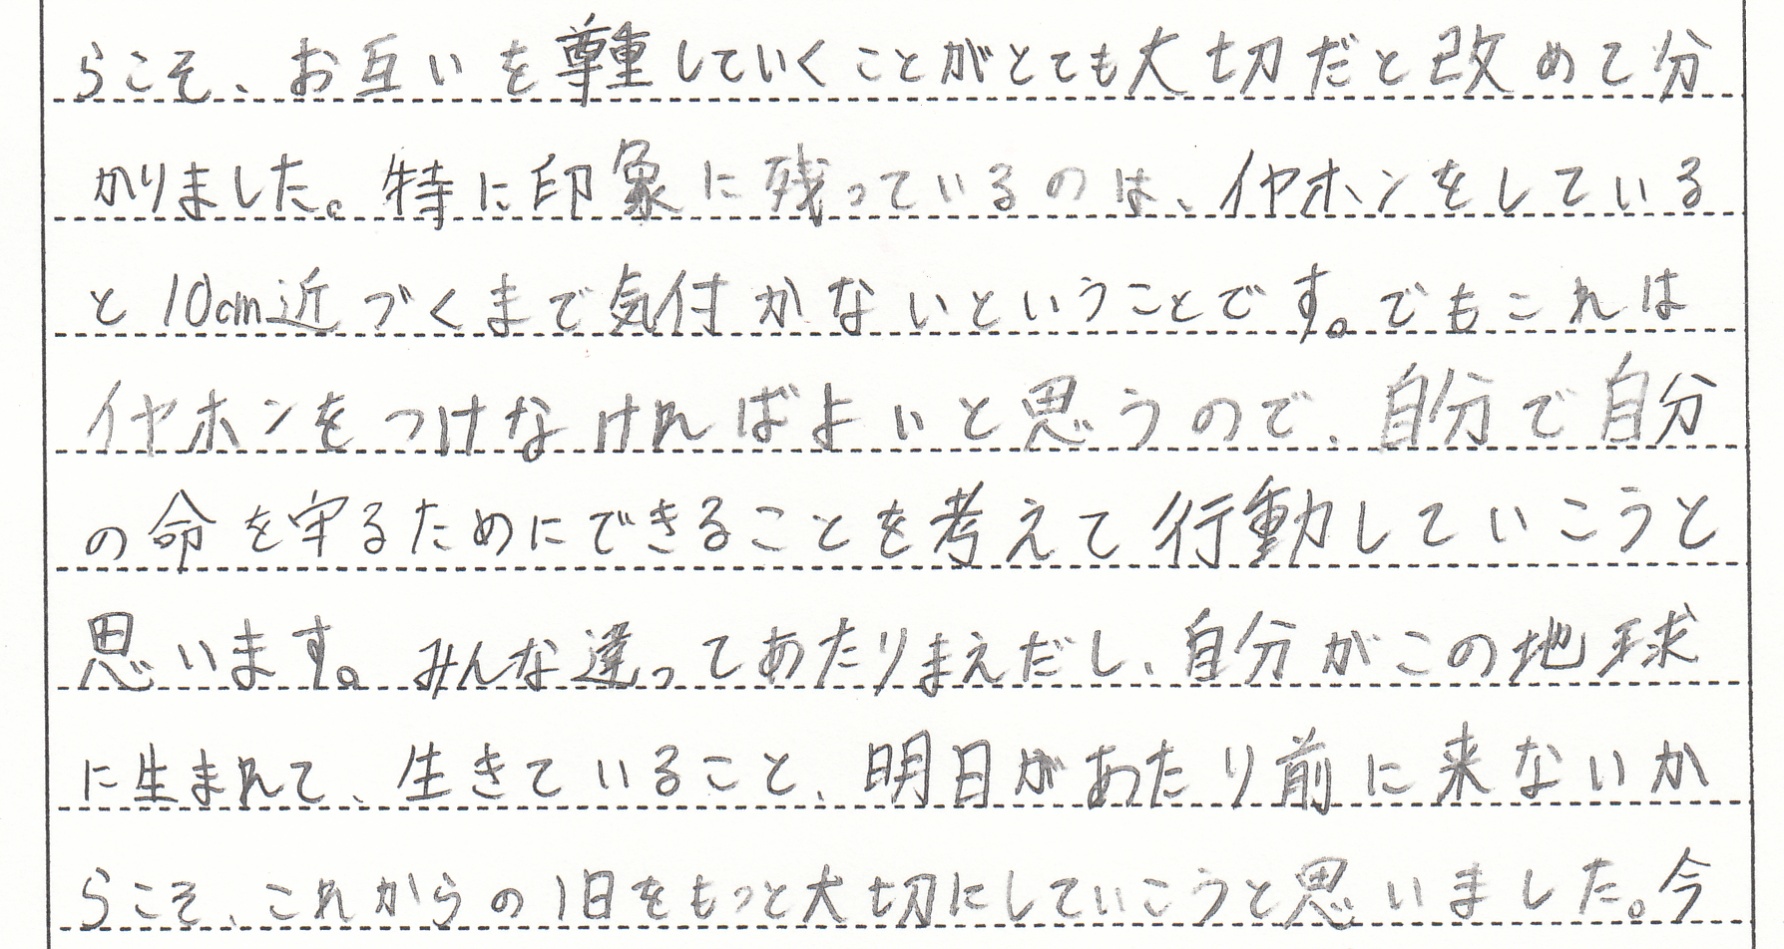 らこそ、お互いを尊重していくことがとても大切だと改めて分
かりました。特に印象に残っているのは、イヤホンをしている
と10cm近づくまで気付かないということです。でもこれは
イヤホンをつけなければよいと思うので、自分で自分
の命を守るためにできることを考えて行動していこうと
思います。みんな違ってあたりまえだし、自分がこの地球
に生まれて、生きていること、明日があたり前に来ないか
らこそ、これからの1日をもっと大切にしていこうと思いました。今